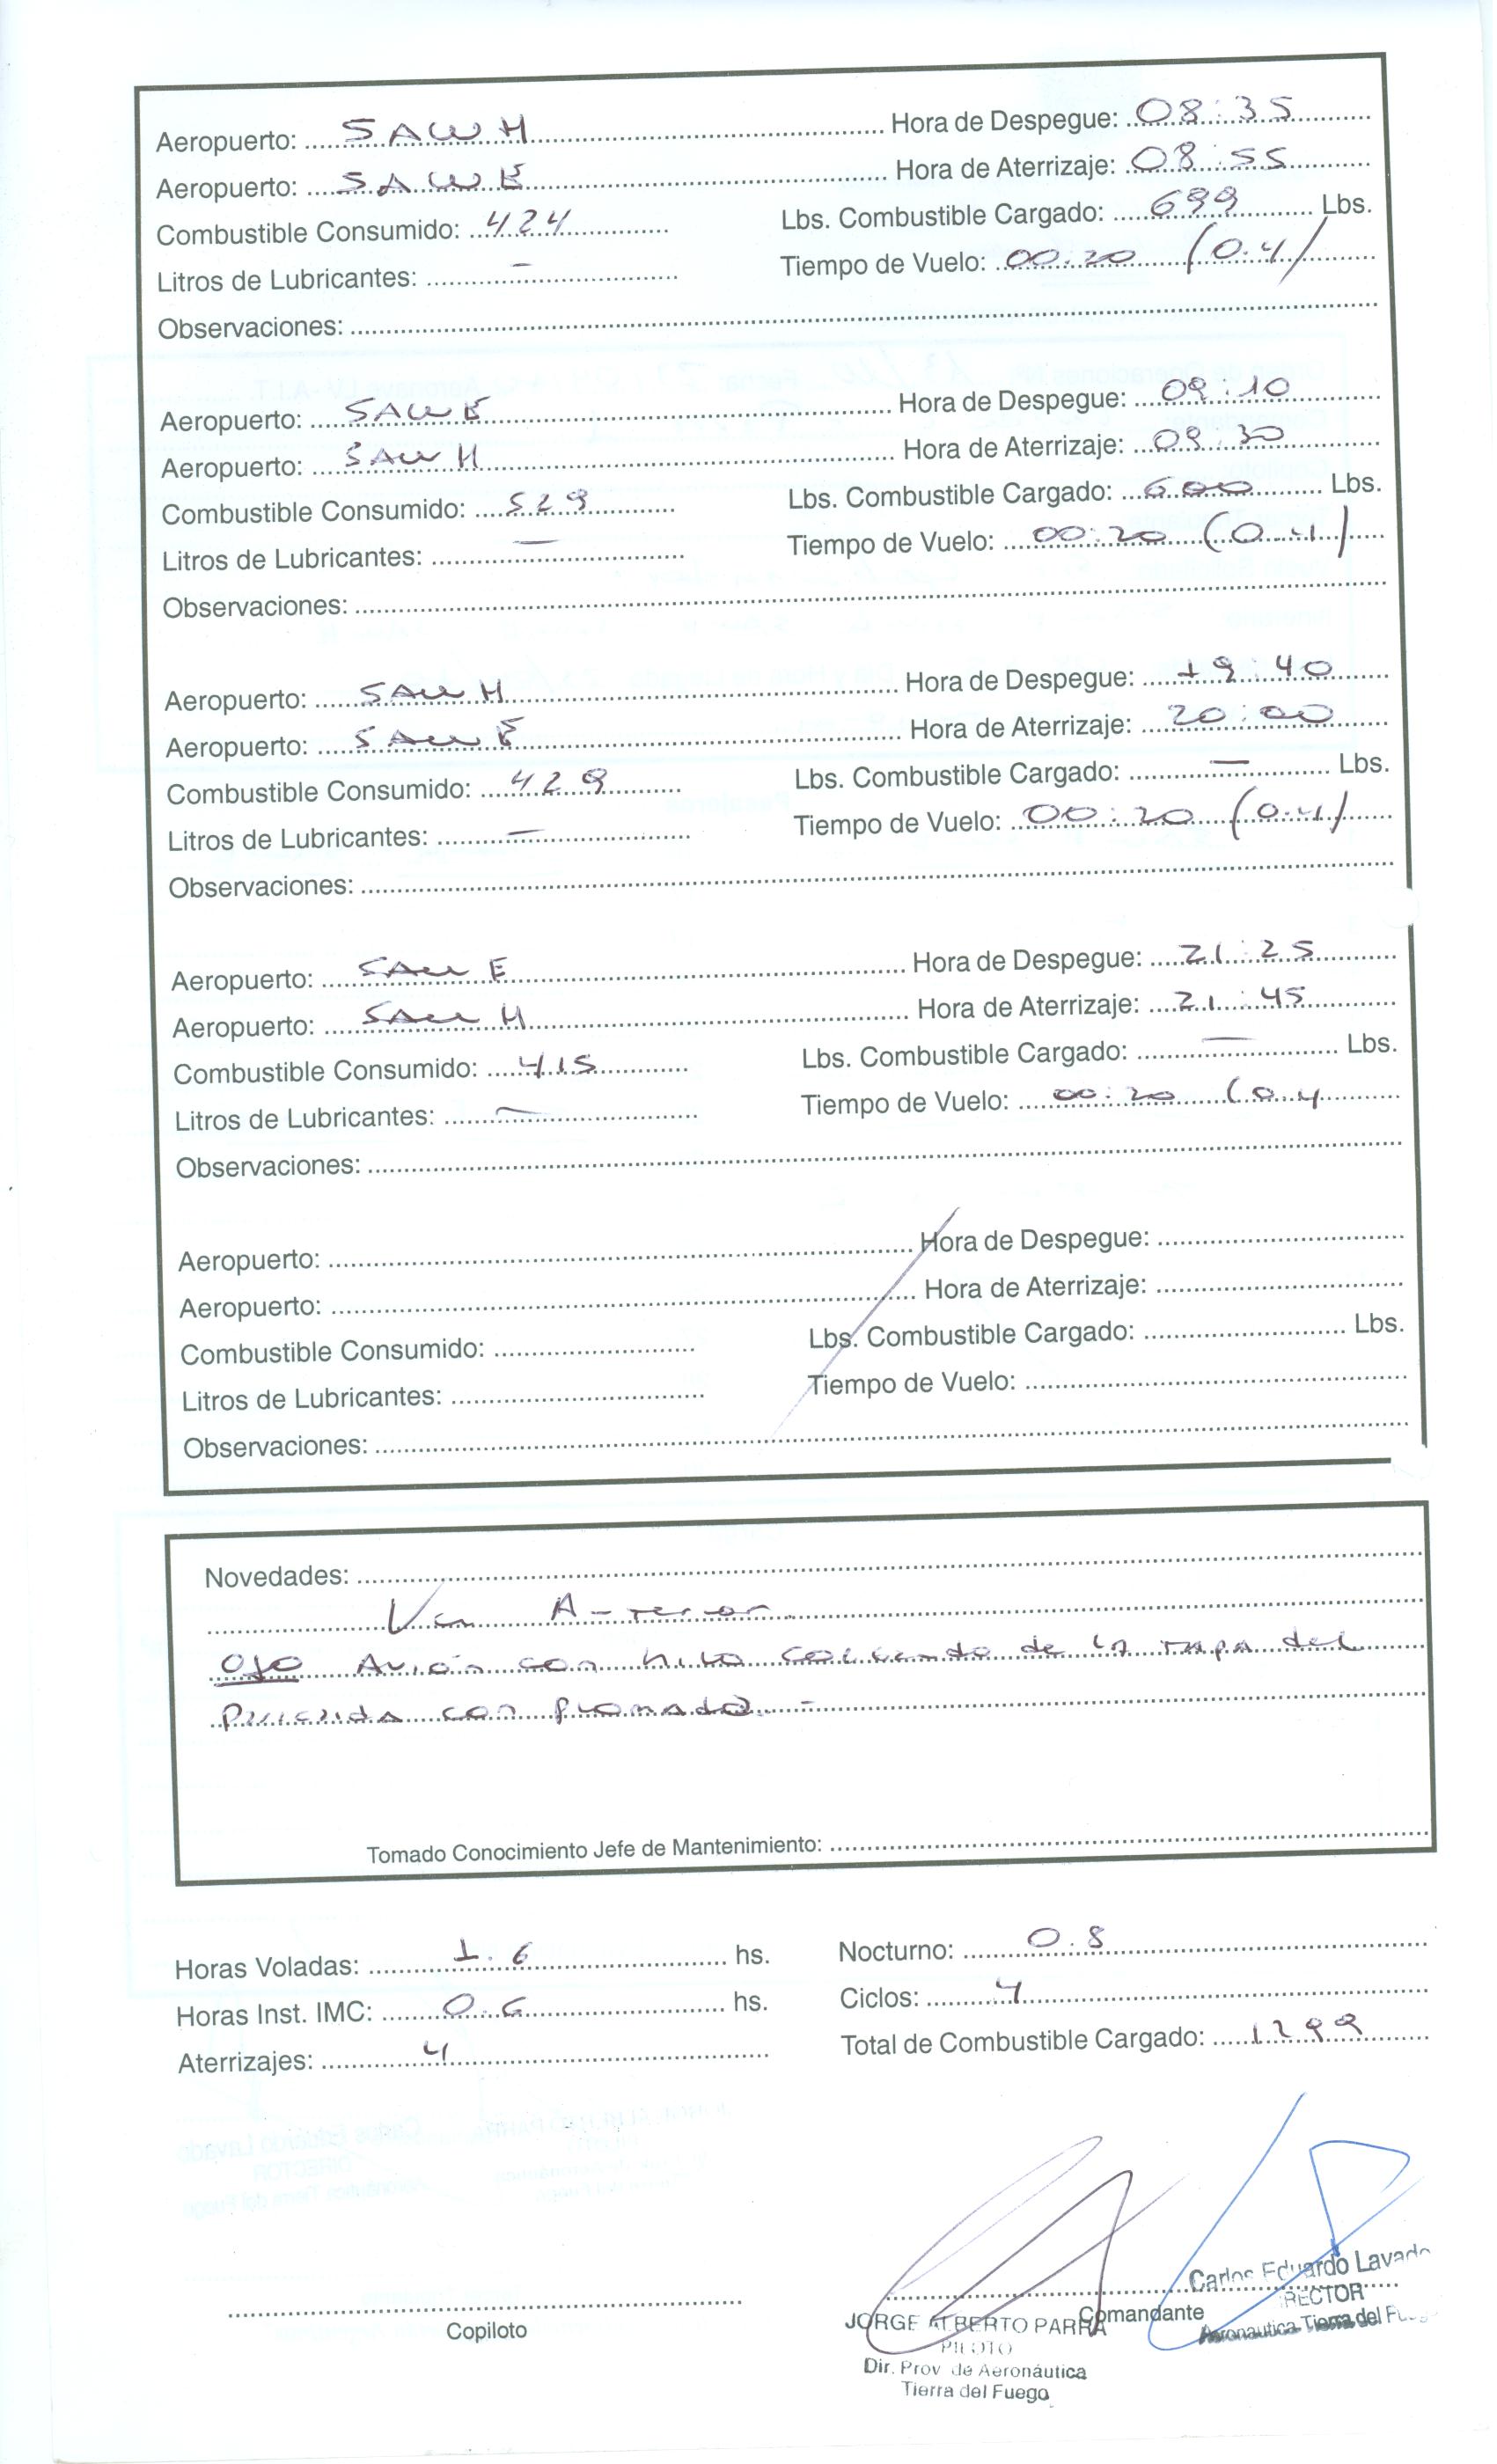 Aeropuerto: SAWH Hora de Despegue: 08:35
Aeropuerto: SAWE Hora de Aterrizaje: 08:55
Combustible Consumido: 424 Lbs. Combustible Cargado: 699 Lbs.
Litros de Lubricantes: — Tiempo de Vuelo: 00:20 (0.4)
Observaciones:
Aeropuerto: SAWE Hora de Despegue: 09:10
Aeropuerto: SAWH Hora de Aterrizaje: 09:30
Combustible Consumido: 529 Lbs. Combustible Cargado: 600 Lbs.
Litros de Lubricantes: — Tiempo de Vuelo: 00:20 (0.4)
Observaciones:
Aeropuerto: SAWH Hora de Despegue: 19:40
Aeropuerto: SAWE Hora de Aterrizaje: 20:00
Combustible Consumido: 429 Lbs. Combustible Cargado: — Lbs.
Litros de Lubricantes: — Tiempo de Vuelo: 00:20 (0.4)
Observaciones:
Aeropuerto: SAWE Hora de Despegue: 21:25
Aeropuerto: SAWH Hora de Aterrizaje: 21:45
Combustible Consumido: 415 Lbs. Combustible Cargado: — Lbs.
Litros de Lubricantes: — Tiempo de Vuelo: 00:20 (0.4
Observaciones:
Aeropuerto: Hora de Despegue:
Aeropuerto: Hora de Aterrizaje:
Combustible Consumido: Lbs. Combustible Cargado: Lbs.
Litros de Lubricantes: Tiempo de Vuelo:
Observaciones:
Novedades:
OJO Avión con hilo de la tapa del
con plomado.-
Tomado Conocimiento Jefe de Mantenimiento:
Horas Voladas: 1.6 hs. Nocturno: 0.8
Horas Inst. IMC: 0.6 hs. Ciclos: 4
Aterrizajes: 4 Total de Combustible Cargado: 1299
Copiloto
Comandante
JORGE ALBERTO PARRA
PILOTO
Dir. Prov. de Aeronáutica
Tierra del Fuego
Carlos Eduardo Lavado
RECTOR
Aeronautica Tierra del Fu